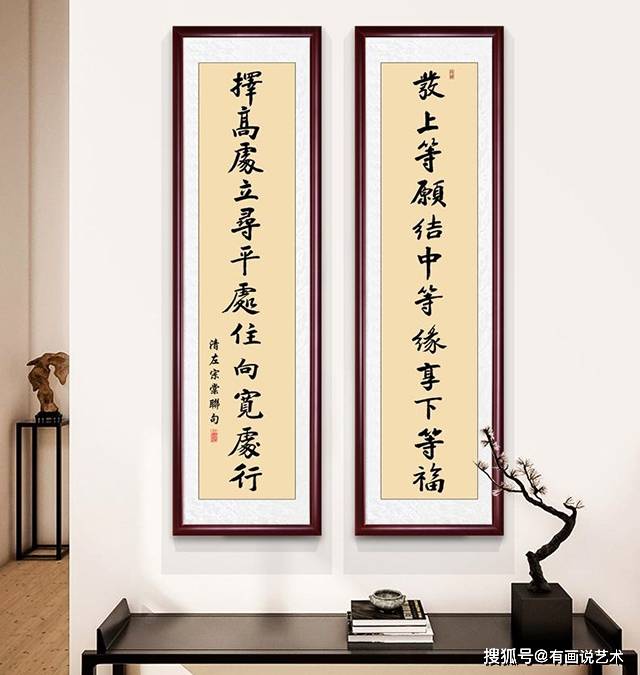 發上等願結中等緣享下等福
擇高處立尋平處住向寬處行
清左宗棠聯句
搜狐号@有画说艺术